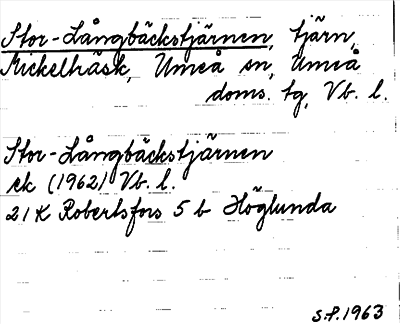 Stor-Långbäckstjärnen, tjärn,
Mickelträsk, Umeå sn, Umeå
doms. tg, Vb. l.
Stor-Långbäckstjärnen
ek (1962) Vb. l.
21K Robertsfors 5 b Höglunda
S.P. 1963